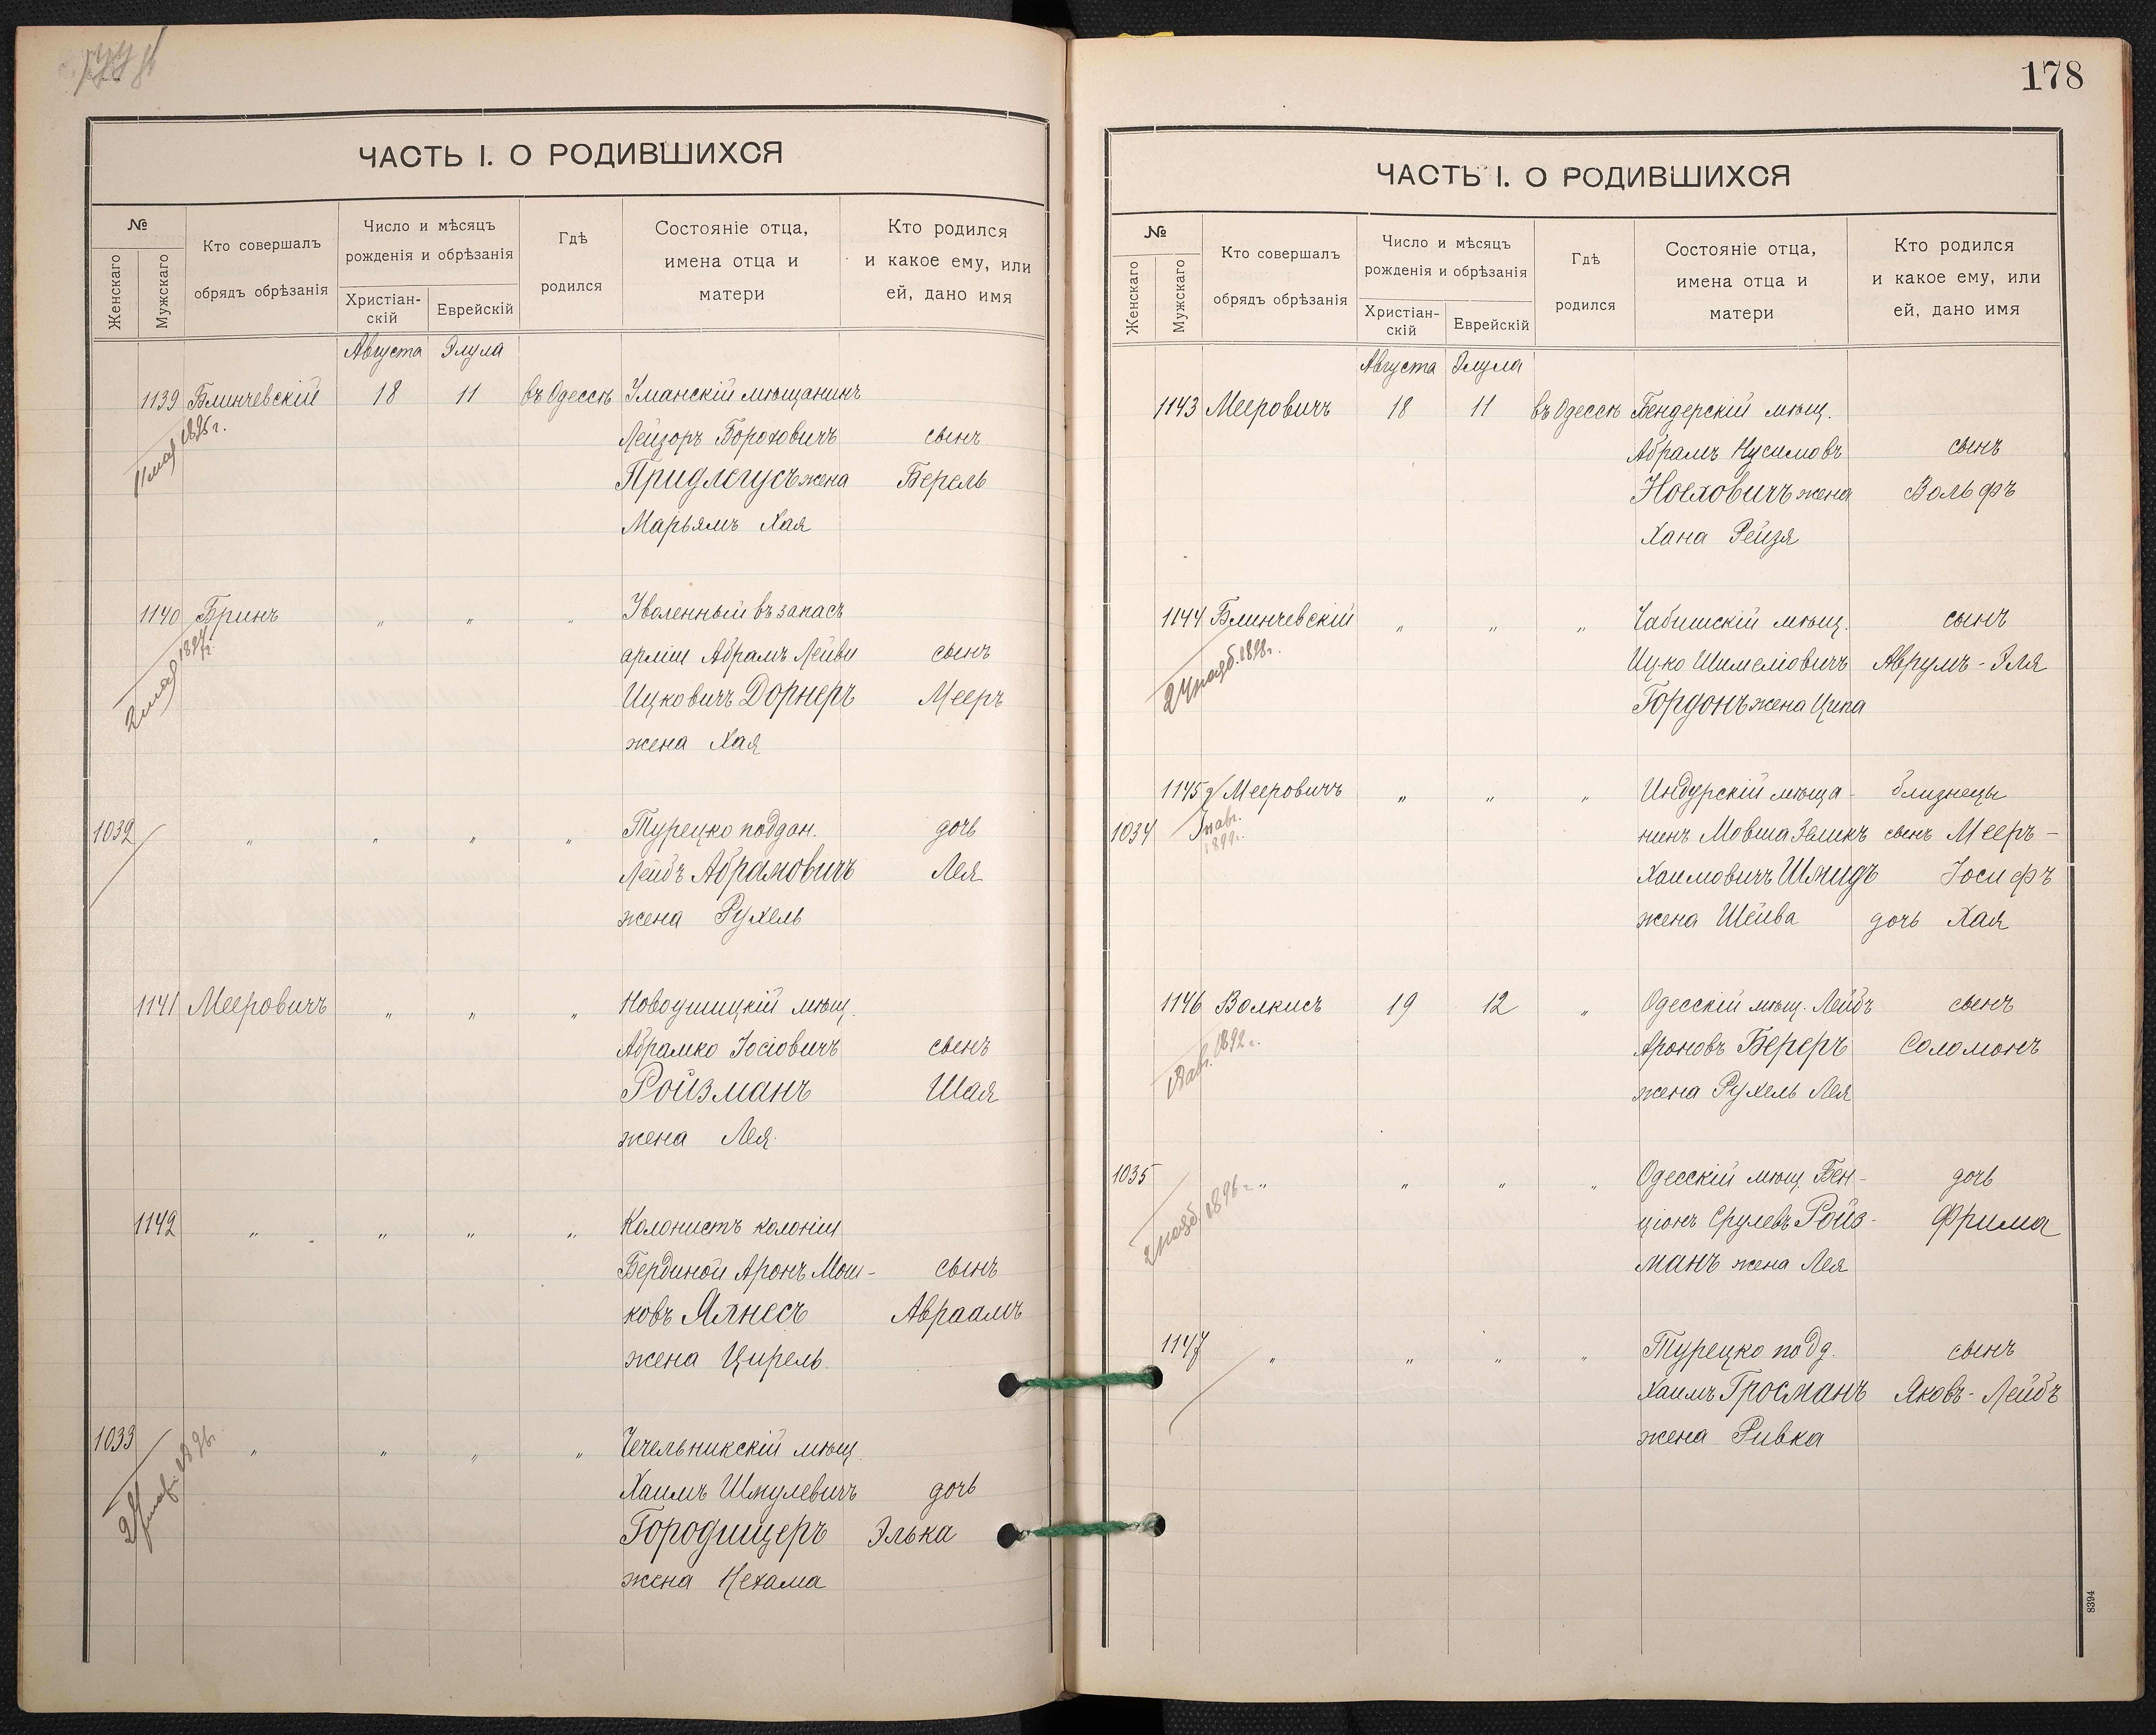 ЧАСТЬ I. О РОДИВШИХСЯ
№
Женскаго
Мужскаго
Кто совершалъ
обрядъ обрѣзанія
Число и мѣсяцъ
рожденія и обрѣзанія
Христіан-
скій
Еврейскій
Гдѣ
родился
Состояніе отца,
имена отца и
матери
Кто родился
и какое ему, или
ей, дано имя
Августа Элула
1139 Блинчевскій 18 11 въ Одессѣ Уманскій мѣщанинъ
1896 г.
Лейзоръ Бороховичъ сынъ
Придлгусъ жена Берель
Марьямъ Хая
1140 Бринъ " " " Уволенный въ запасъ
арміи Абрамъ Лейви сынъ
Ицковичъ Дорнеръ Мееръ
жена Хая
1032 " " " " Турецко поддан. дочь
Лейбъ Абрамовичъ Лея
жена Рухель
1141 Мееровичъ " " " Новоушицкій мѣщ.
Абрамко Іосіовичъ сынъ
Ройзманъ Шая
жена Лея
1142 " " " " Колонистъ колоніи
Бердиной Аронъ Мош-
сынъ
ковъ Ялнесъ Авраамъ
жена Цирель.
1033 " " " " Чечельникскій мѣщ.
1896г.
Хаимъ Шмулевичъ дочь
Городищеръ Элька
жена Нехама
178
ЧАСТЬ I. О РОДИВШИХСЯ
№
Женскаго
Мужскаго
Кто совершалъ
обрядъ обрѣзанія
Число и мѣсяцъ
рожденія и обрѣзанія
Христіан-
скій
Еврейскій
Гдѣ
родился
Состояніе отца,
имена отца и
матери
Кто родился
и какое ему, или
ей, дано имя
Августа Элула
1143 Мееровичъ 18 11 въ Одессѣ Бендерскій мѣщ.
Абрамъ Нусимовъ сынъ
Ноеховичъ жена Вольфъ
Хана Рейзя
1144 Блинчевскій " " " Чабишскій мѣщ. сынъ
1898г.
Ицко Шимеліовичъ Аврумъ-Эля
Гордонъ жена Ципа
1145 Мееровичъ " " " Индурскій мѣща- близнецы
1034 нинъ Мовша Зеликъ сынъ Мееръ-
Хаимовичъ Шмидъ Іосифъ
жена Шейва дочь Хая
1146 Волкисъ 19 12 " Одесскій мѣщ. Лейбъ сынъ
1892 г.
Ароновъ Береръ Соломонъ
жена Рухель Лея
1035 " " " " Одесскій мѣщ. Бен- дочь
1896 г.
ціонъ Срулевъ Ройз- Фрима
манъ жена Лея
1147 " " " " Турецко подд. сынъ
Хаимъ Гросманъ Яковъ-Лейбъ
жена Ривка
8394